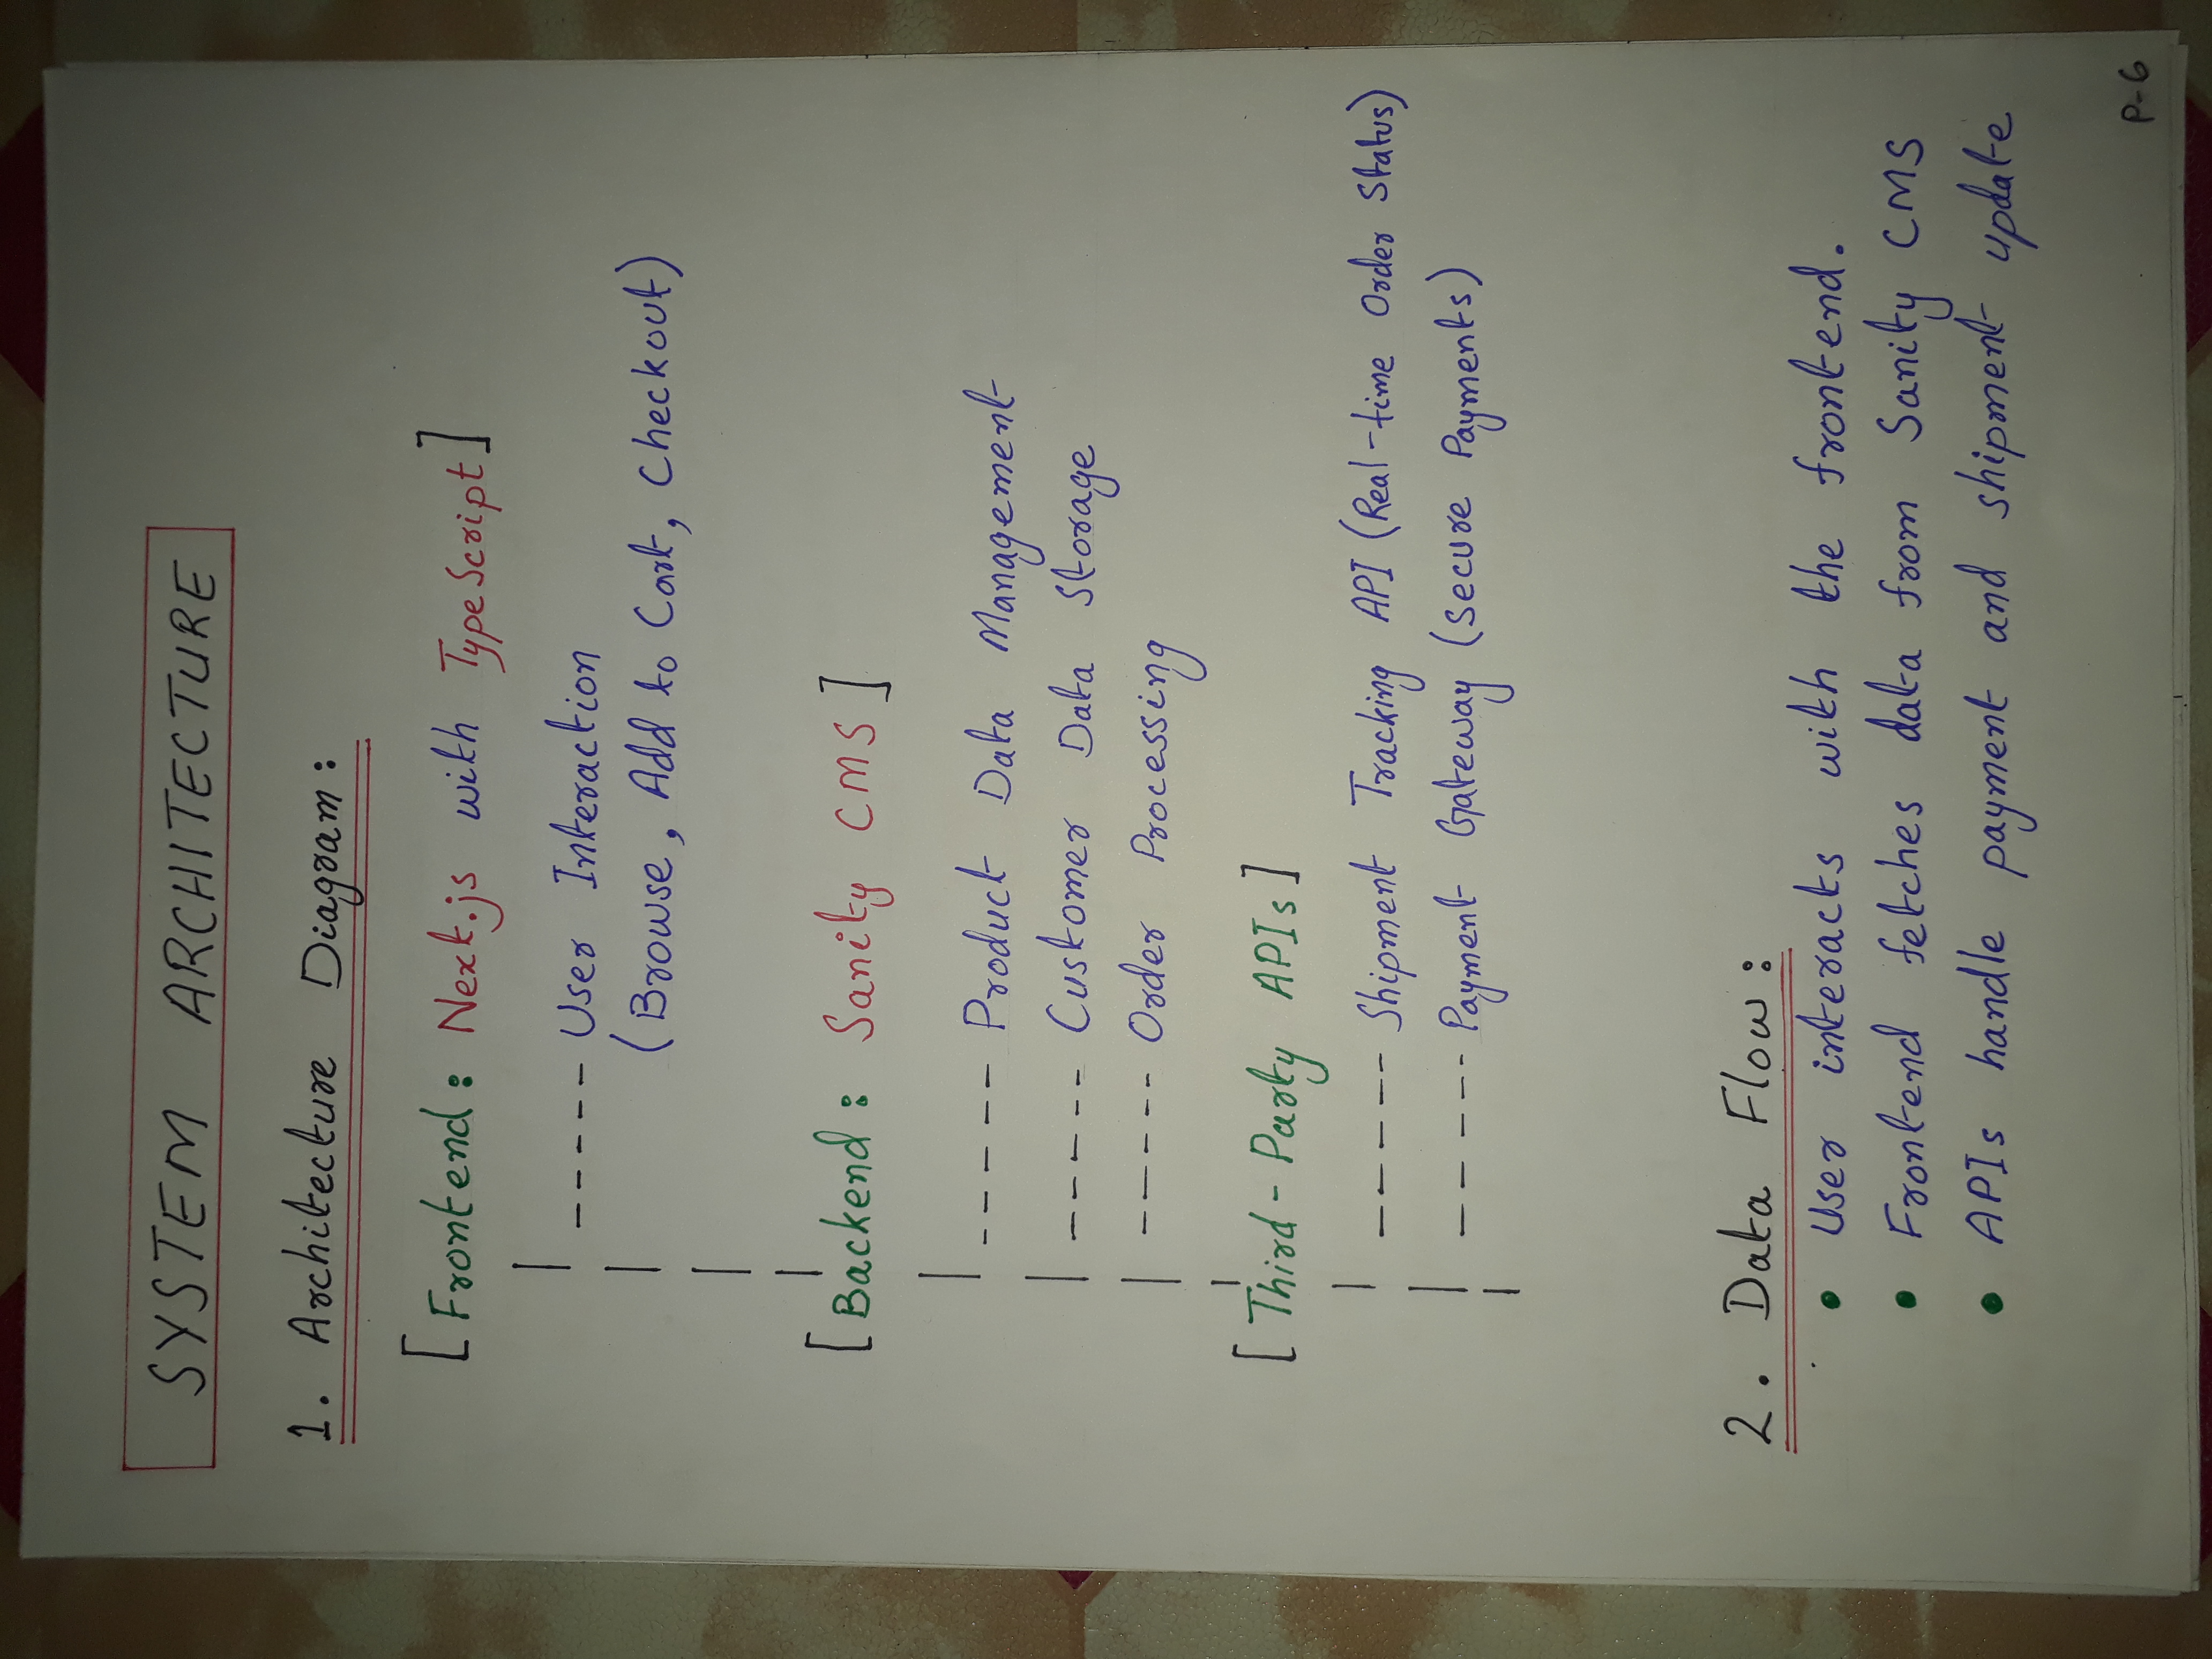 SYSTEM ARCHITECTURE
1. Architecture Diagram:
[Frontend: Next.js with TypeScript]
----- User Interaction
(Browse, Add to Cart, Checkout)
[Backend: Sanity CMS]
----- Product Data Management
----- Customer Data Storage
----- Order Processing
[Third-Party APIs]
----- Shipment Tracking API (Real-time Order Status)
----- Payment Gateway (Secure Payments)
2. Data Flow:
• User interacts with the frontend.
• Frontend fetches data from Sanity CMS
• APIs handle payment and shipment update
P-6